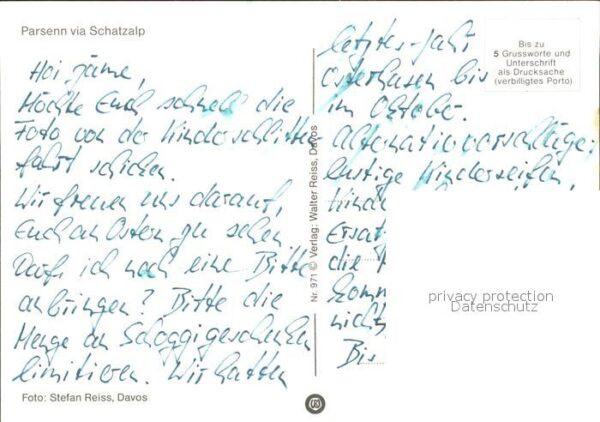 Parsenn via Schatzalp
Hoi zäme,
Möchte Euch schnell die
Foto von der Kinderschlitten
fahrt schicken.
Wir freuen uns darauf,
Euch an Ostern zu sehen.
Darf ich noch eine Bitte
anbringen? Bitte die
Menge an Schoggigeschenken
limitieren. Wir hatten
Foto: Stefan Reiss, Davos
Nr. 971 © Verlag: Walter Reiss, Davos
letztes Jahr
Osterhasen bis
im Oktober.
Alternativvorschläge:
lustige Kinderseifen,
Kind
Ersat
die
Komm
nicht
Bis
Bis zu
5 Grussworte und
Unterschrift
als Drucksache
(verbilligtes Porto)
privacy protection
Datenschutz